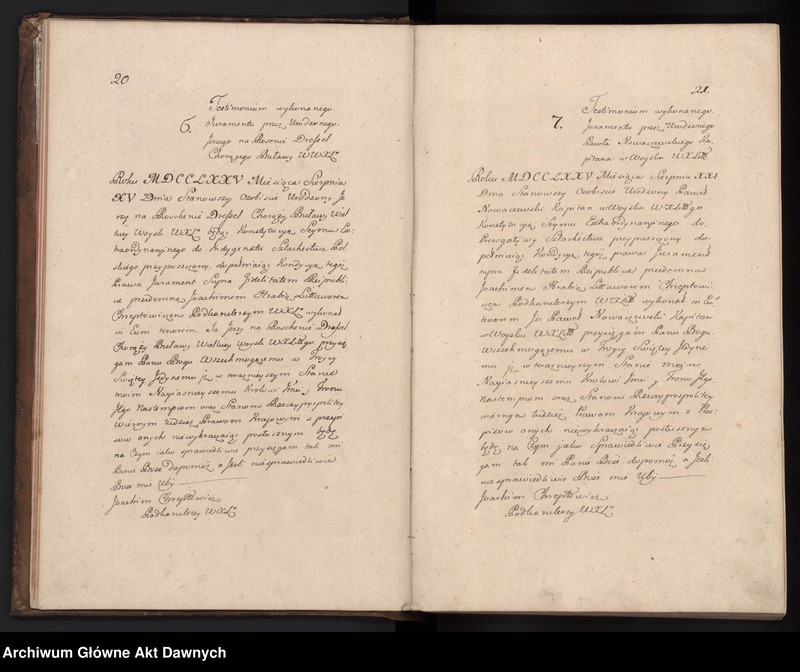 20
6.
Testimonium wykonanego
Juramentu przez Urodzonego
Jerzego na Roschenie Drossel
Chorążego Buławy WWXLo
Roku MDCCLXXV Miesiąca Sierpnia
XV Dnia Stanowszy Ozobiscie Urodzony Je
rzy na Roschenie Drossel Chorąży Buławy Wiel
kiey Woysk WXL będąc Konstytucyą Seymu Ex
traordynaryinego do Indygenatu Szlachectwa Pol
skiego przypuszczony, dopełniaiąc Kondycyą tegoż
Prawa Jurament Supra Fidelitatem Reipubli
cæ przedemną Joachimem Hrabią Littaworem
Chreptowiczem Podkanclerzym WXLo wykonał
in Eum tenorem. Ja Jerzy na Roschenie Drossel
Chorąży Buławy Wielkiey Woysk WXLittgo przysię
gam Panu Bogu Wszechmogącemu w Troycy
Swiętey Jedynemu iż w teraznieyszym Stanie
moim Nayiasnieyszemu Krolowi Jmci y Tronu
Jego Nastempcom oraz Stanom Rzeczypospolitey
Wiernym tudzież Prawom Kraiowym z przepi
sow onych niewykraczaiąc posłusznym będę
na Czym iako sprawiedliwie przysięgam tak mi
Panie Boże dopomoż a Jesli niesprawiedliwie
Boże mię Ubiy
Joachim Chreptowicz
Podkanclerzy WXLo
21.
7.
Testimonium wykonanego
Juramentu przez Urodzonego
Pawła Nowaczewskiego Ka
pitana w Woysku WXLitt
Roku MDCCLXXV Miesiąca Sierpnia XXI
Dnia Stanowszy Ozobiscie Urodzony Paweł
Nowaczewski Kapitan w Woysku WXLittgo
Konstytucyą Seymu Extraordynaryinego do
Prerogatywy Szlachectwa przypuszczony do
pełniaiąc Kondycyą tegoż prawa Jurament
supra Fidelitatem Reipublicæ przedemną
Joachimem Hrabią Littaworem Chreptowi
czem Podkanclerzym WXLitt wykonał in Eum
tenorem Ja Paweł Nowaczewski Kapitan
w Woysku WXLitt przysięgam Panu Bogu
Wszechmogącemu w Troycy Swiętey Jedyne
mu iż w teraznieyszym Stanie moim
Nayiasnieyszemu Krolowi Jmci y Tronu Jego
Nastempcom oraz Stanom Rzeczypospolitey
wiernym tudzież Prawom Kraiowym z Prze
pisow onych niewykraczaiąc posłusznym
będę na Czym iako Sprawiedliwie Przysię
gam tak mi Panie Boże dopomoż a Jesli
niesprawiedliwie Boże mię Ubiy
Joachim Chreptowicz
Podkanclerzy WXLo
Archiwum Główne Akt Dawnych